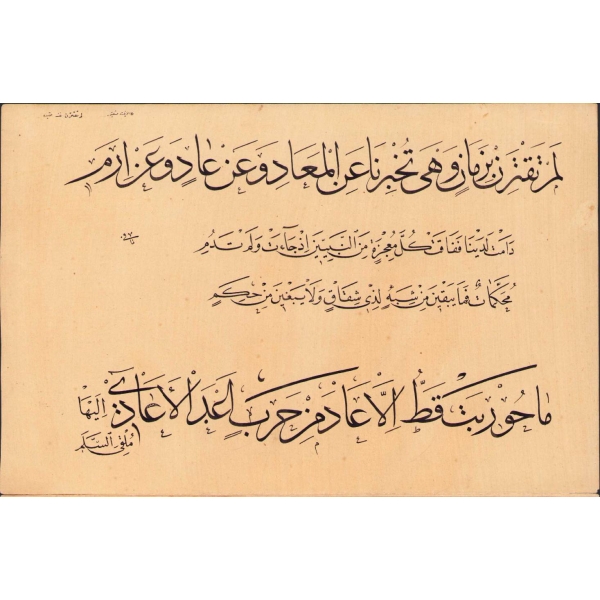 لَمْ تَقْتَرِنْ بِزَمَانٍ وَهْىَ تُخْبِرُنَا عَنِ الْمَعَادِ وَعَنْ عَادٍ وَعَنْ اِرَمِ
دَامَتْ لَدَيْنَا فَفَاقَتْ كُلَّ مُعْجِزَةٍ مِنَ النَّبِيِّينَ اِذْ جَاءَتْ وَلَمْ تَدُمِ
مُحَكَّمَاتٌ فَمَا يُبْقِينَ مِنْ شُبَهٍ لِذِى شِقَاقٍ وَلَا يَبْغِينَ مِنْ حَكَمِ
مَا حُورِبَتْ قَطُّ اِلَّا عَادَ مِنْ حَرَبٍ اَعْدَى الْاَعَادِى اِلَيْهَا مُلْقِىَ السَّلَمِ